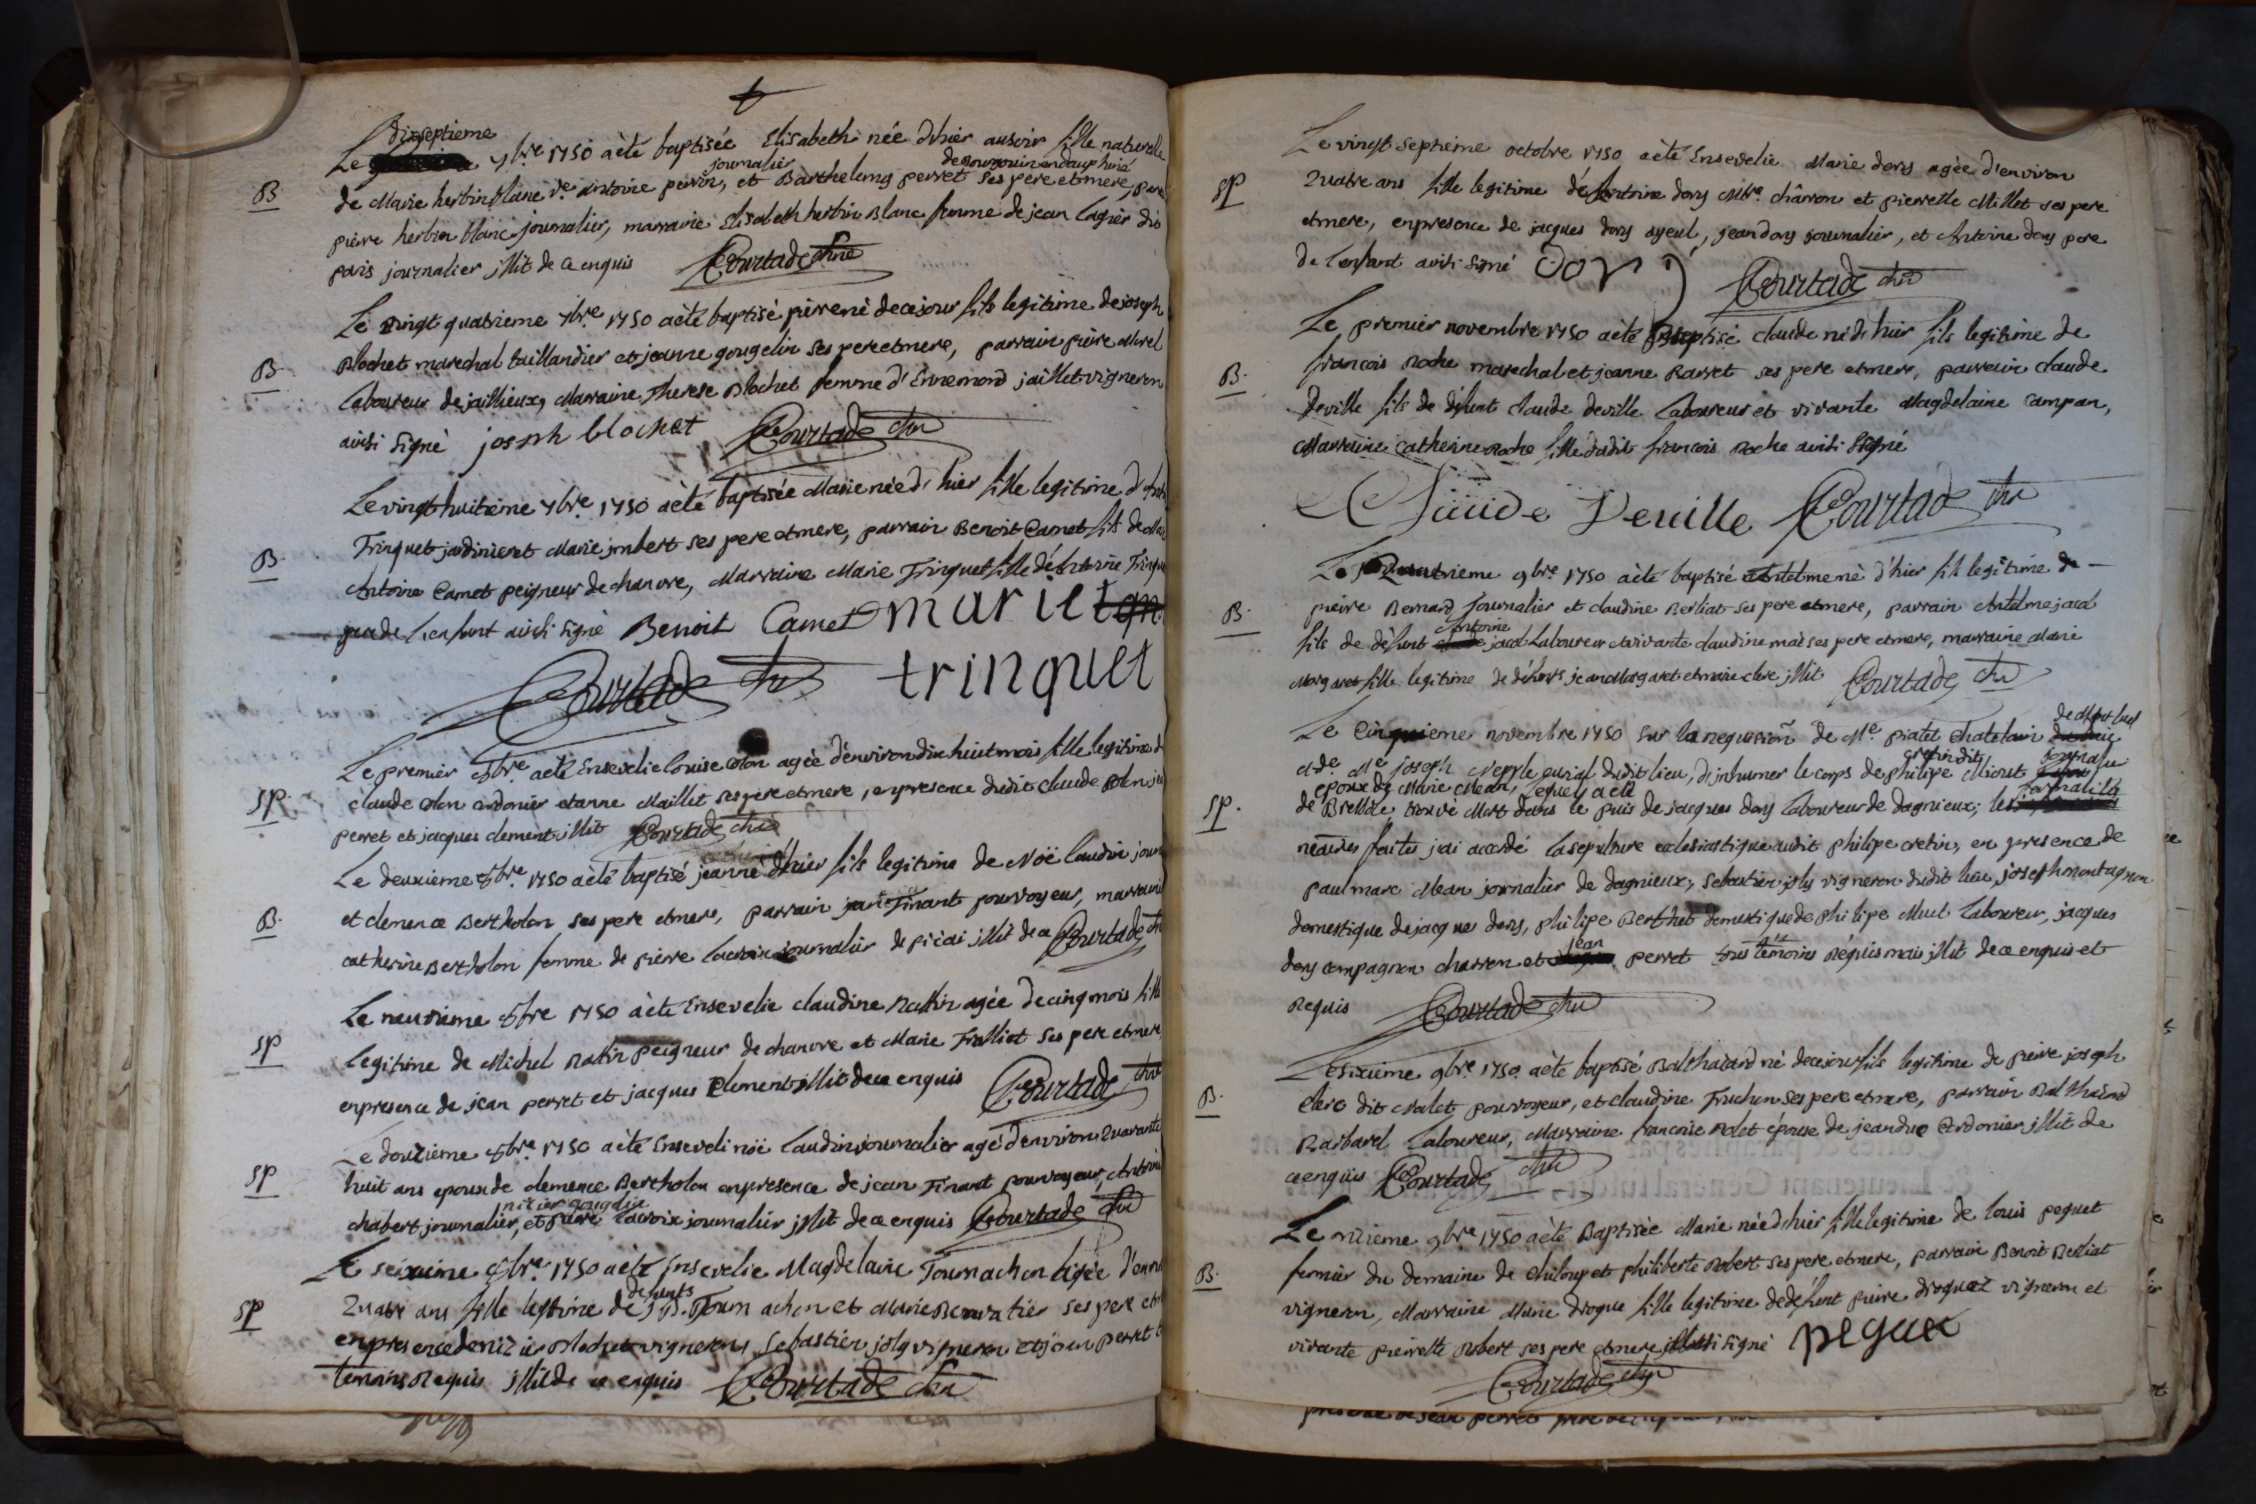 dixseptieme
Le 7bre 1750 a èté baptisée Elisabeth née d'hier au soir fille naturelle
journalier de Bourgouin en dauphiné
B de Marie herbin blanc ve antoine perrin, et Barthelemy perret ses pere et mere, par
pierre herbin blanc journalier, marraine Elisabeth herbin Blanc femme de jean lagier dio
pavis journalier illit de ce enquis Courtade
Le vingt quatrieme 7bre 1750 a èté baptisé pierre né de ce jour fils legitime de joseph
B Blochet marechal taillandier et jeanne gougelin ses pere et mere, parrain pierre
laboureur de jaillieux, Marraine Therese Blochet femme d'Ennemond jaillet vigneron
ainsi signé joseph blochet Courtade
Le vingt huitieme 7bre 1750 a èté baptisée Marie née d'hier fille legitime d'
B Trinquet jardinier et Marie jmbert ses pere et mere, parrain Benoit Camet fils de
Antoine Camet peigneur de chanvre, Marraine Marie Trinquet fille d'Antoine Trinqu
l'enfant ainsi signé Benoit Camet marie
Courtade trinquet
Le premier 8bre a èté Ensevelie Louise Colon agée d'environ dix huit mois fille legitime d
SP claude Colon Cordonier et anne Maillet ses pere et mere, en presence dudit claude Colon
perret et jacques clement illit Courtade
Le deuxieme 8bre 1750 a èté baptisé jean né d'hier fils legitime de Noë Laudin journ
B et clemence Bertholon ses pere et mere, parrain jean Finant pourvoyeur, marrain
catherine Bertholon femme de pierre lacroix journalier de illit de ce Courtade
Le neuvieme 8bre 1750 a èté Ensevelie claudine Rattin agée de cinq mois fille
SP legitime de Michel Rattin peigneur de chanvre et Marie Tralliot ses pere et mere
en presence de jean perret et jacques Clement illit de ce enquis Courtade
Le douzieme 8bre 1750 a èté Enseveli noë Laudin journalier agé d'environ Quarante
SP huit ans epoux de clemence Bertholon en presence de jean Finant pourvoyeur, Antoine
nizier gougelin
chabert journalier, et pierre lacroix journalier illit de ce enquis Courtade
Le seizieme 8bre 1750 a èté Ensevelie Magdelaine Tournachon agée d'environ
defunts
SP Quatre ans fille legitime de J B. Tournachon et Marie ses pere et
en presence de nizier Blochet vigneron, Sebastien joly vigneron et jean perret
temoins Requis illit de ce enquis Courtade
Le vingt septieme octobre 1750 a èté Ensevelie Marie dory agée d'environ
SP Quatre ans fille legitime d'Antoine dory Mtre chârron et pierrette Millet ses pere
et mere, en presence de jacques dory ayeul, jean dory journalier, et Antoine dory pere
de l'enfant ainsi signé Dory Courtade
Le premier novembre 1750 a èté Baptisé claude né d'hier fils legitime de
B. francois Roche marechal et jeanne Ravvet ses pere et mere, parrain claude
deville fils de défunt Claude deville laboureur et vivante Magdelaine Campan,
Marraine Catherine Roche fille dudit francois Roche ainsi Signé
Claude Deville Courtade
Le Quatrieme 9bre 1750 a èté baptisé Antelme né d'hier fils legitime de
B. pierre Bernard Journalier et claudine Berliat ses pere et mere, parrain Antelme jacod
Antoine
fils de défunt jacod Laboureur et vivante claudine ses pere et mere, marraine Marie
Margaret fille legitime de défunts jean Margaret et marie clere illit Courtade
Le Cinquieme novembre 1750 sur la requision de Me piatet chatelain de Montluel
& de Me joseph curial dudit lieu, d'inhumer le corps de philipe cretin dit Micout
epoux de Marie Mean, lequel a èté
SP. de Bressole, trouvé Mort dans le puis de jacques dory laboureur de dagnieux; les formalités
faites j'ai accordé la sepulture eclesiastique audit philipe cretin, en presence de
paul marc Mean journalier de dagnieux, sebastien joly vigneron dudit lieu, joseph montagnon
domestique de jacques dory, philipe Berthet domestique de philipe Muet laboureur, jacques
dory compagnon charron et jean perret tous temoins Réquis mais illit de ce enquis et
Requis Courtade
Le sixieme 9bre 1750 a èté baptisé Balthazard né de ce jour fils legitime de pierre joseph
B. clerc dit valet pourvoyeur, et claudine Truchon ses pere et mere, parrain Balthazard
Barbarel laboureur, Marraine francoise Rolet épouse de jean duc Cordonier illit de
ce enquis Courtade
Le onzieme 9bre 1750 a èté Baptisée Marie née d'hier fille legitime de louis peguet
B. fermier du domaine de chiloup et philiberte Robert ses pere et mere, parrain Benoit Berliat
vigneron, Marraine Marie droguet fille legitime de défunt pierre droguet vigneron et
vivante pierrette Robert ses pere et mere signé peguet
Courtade